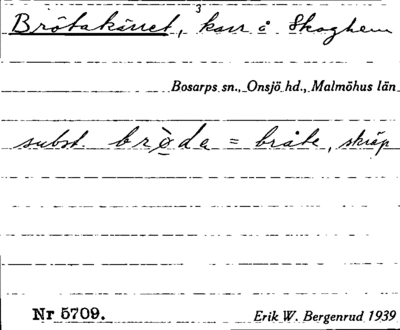 3
Brötakärret, karr å Skoghem
Bosarps sn., Onsjö hd., Malmöhus län
subst. bröda = bråte, skräp
Nr 5709.
Erik W. Bergenrud 1939